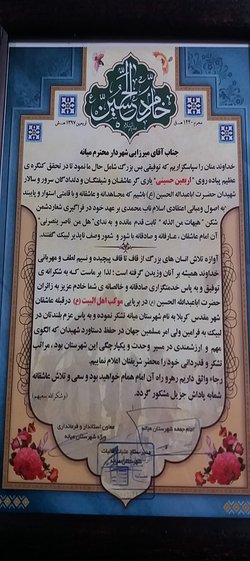 خادم الحسین
محرم ۱۴۴۰ هـ.ق
اربعین ۱۳۹۷ هـ.ش
جناب آقای میرزایی شهردار محترم میانه
خداوند منان را سپاسگزاریم که توفیقی بس بزرگ شامل حال ما نمود تا در تحقق کنگره ی
عظیم پیاده روی "اربعین حسینی" یاری گر عاشقان و شیفتگان و دلدادگان سرور و سالار
شهیدان حضرت اباعبدالله الحسین (ع) باشیم که مجاهدانه و عاشقانه و با قامتی استوار و پایبند
به اصول و مبانی اعتقادی اسلام ناب محمدی بر عهد خود در فراگیری شعار دشمن
شکن "هیهات من الذله" ثابت قدم مانده و به ندای "هل من ناصر ینصرنی"
آن امام عاشقان، عارفانه و صادقانه با شور و شعور وصف ناپذیر لبیک گفتند.
آوازه تلاش انسان های بزرگ از قاف تا قاف پیچیده و نسیم لطف و مهربانی
خداوند همیشه بر آنان وزیدن گرفته است؛ لذا بر ماست که به شکرانه ی
توفیق و به پاس خدمتگزاری صادقانه و خالصانه ی شما خادم عزیز به زائران
حضرت اباعبدالله الحسین (ع) در برپایی موکب اهل البیت (ع) در قبله عاشقان
شهر مقدس کربلا به نام شهرستان میانه تشکر نموده و به پاس عزم بلندتان در
لبیک به فرامین ولی امر مسلمین جهان در حفظ دستاورد شهیدان که الگوی
مهم و ارزشمندی در مسیر وحدت و یکپارچگی این شهرستان بود، مراتب
تشکر و قدردانی خود را محضر شریفتان اعلام نماییم.
رجاء واثق داریم رهرو راه آن امام همام خواهید بود و سعی و تلاش عاشقانه
شما به پاداش جزیل مشکور گردد.
امام جمعه شهرستان میانه
معاون استاندار و فرمانداری
ویژه شهرستان میانه